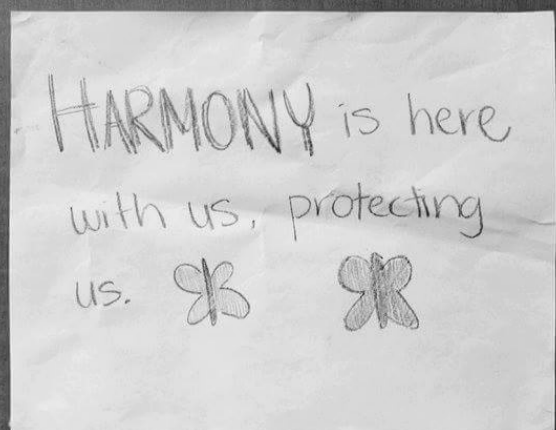 HARMONY is here
with us, protecting
us.